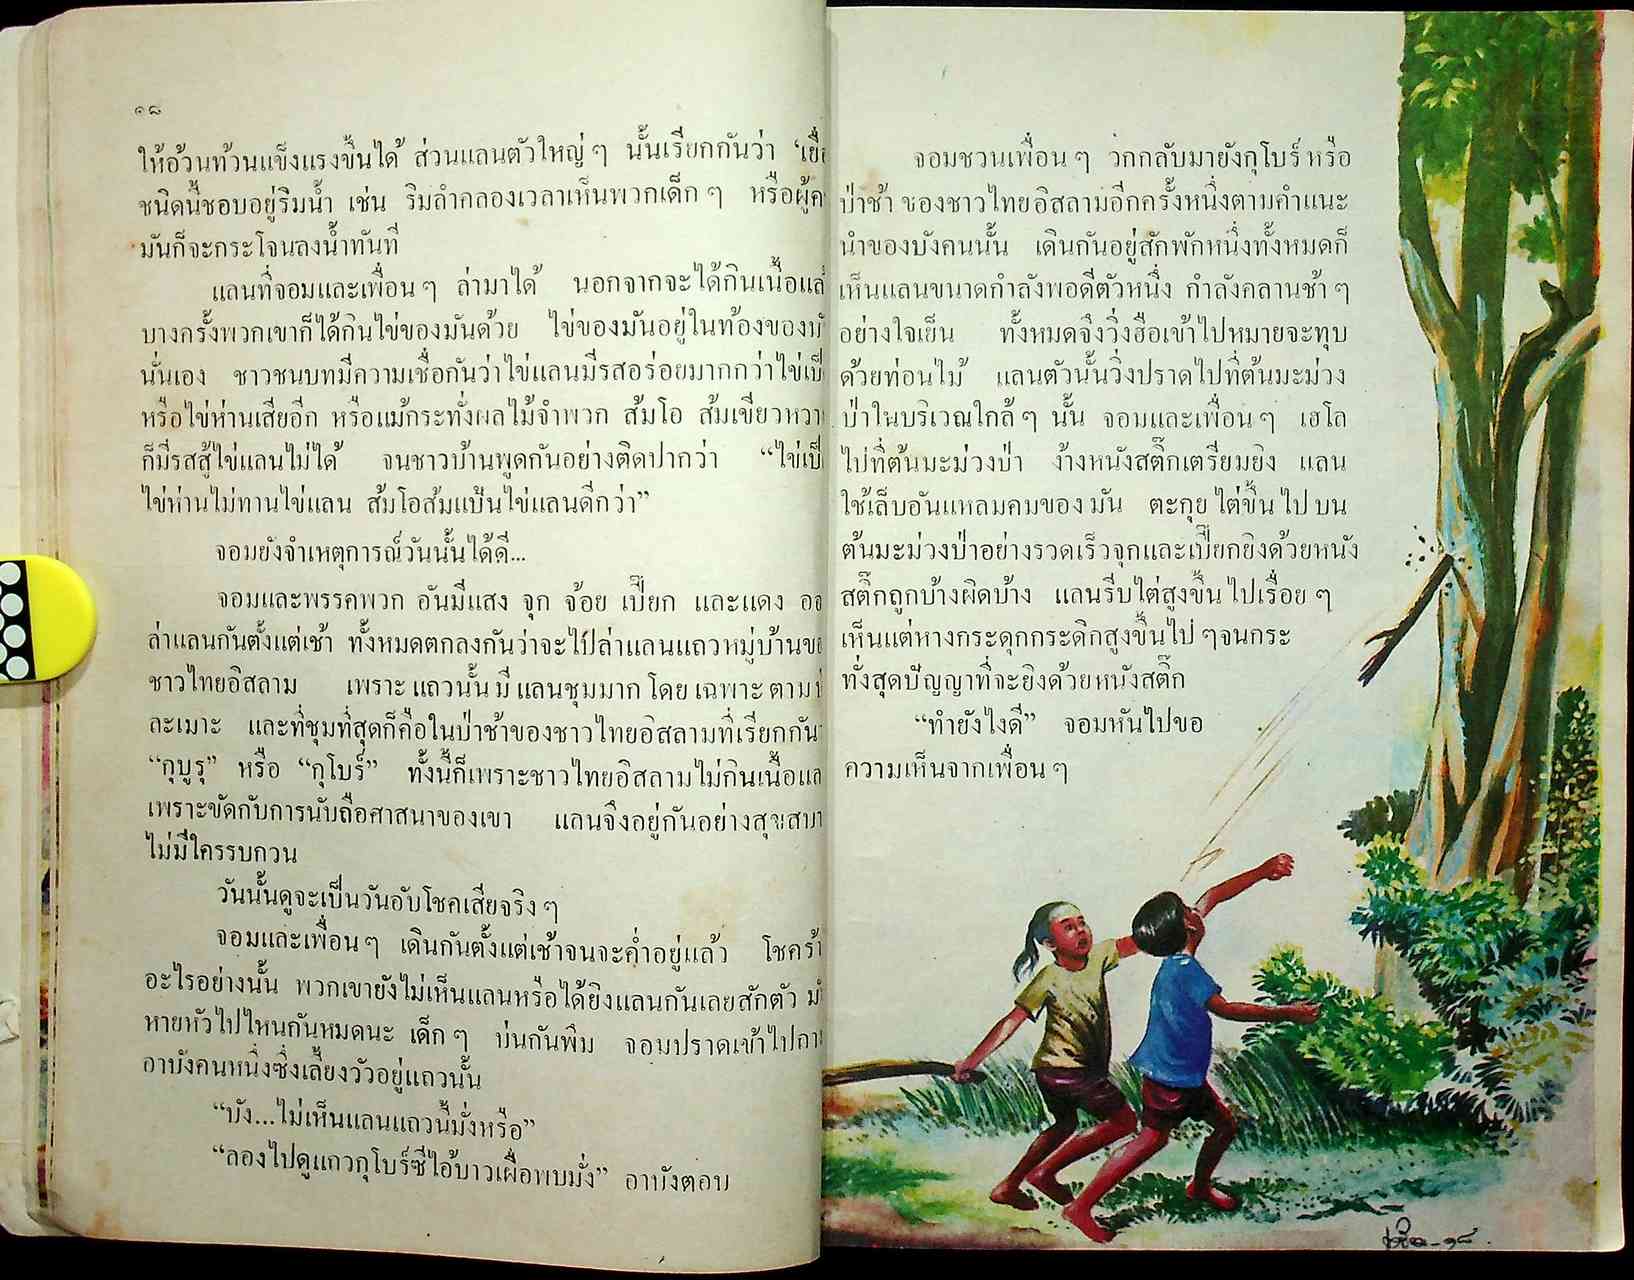 ๑๘
ให้อ้วนท้วนแข็งแรงขึ้นได้ ส่วนแลนตัวใหญ่ ๆ นั้นเรียกกันว่า
ชนิดนี้ชอบอยู่ริมน้ำ เช่น ริมลำคลองเวลาเห็นพวกเด็ก ๆ หรือ
มันก็จะกระโจนลงน้ำทันที
แลนที่จอมและเพื่อน ๆ ล่ามาได้ นอกจากจะได้กินเนื้อ
บางครั้งพวกเขาก็ได้กินไข่ของมันด้วย ไข่ของมันอยู่ในท้องของ
นั่นเอง ชาวชนบทมีความเชื่อกันว่าไข่แลนมีรสอร่อยมากกว่า
หรือไข่ห่านเสียอีก หรือแม้กระทั่งผลไม้จำพวก ส้มโอ
ก็มีรสสู้ไข่แลนไม่ได้ จนชาวบ้านพูดกันอย่างติดปากว่า
ไข่ห่านไม่ทานไข่แลน ส้มโอส้มแป้นไข่แลนดีกว่า”
จอมยังจำเหตุการณ์วันนั้นได้ดี...
จอมและพรรคพวก อันมีแสง จุก จ้อย เปี๊ยก และแดง
ล่าแลนกันตั้งแต่เช้า ทั้งหมดตกลงกันว่าจะไปล่าแลนแถวหมู่บ้าน
ชาวไทยอิสลาม เพราะ แถวนั้น มี แลนชุมมาก โดย เฉพาะ ตาม
ละเมาะ และที่ชุมที่สุดก็คือในป่าช้าของชาวไทยอิสลามที่เรียกกัน
“กุบูรุ” หรือ “กุโบร์” ทั้งนี้ก็เพราะชาวไทยอิสลามไม่กินเนื้อ
เพราะขัดกับการนับถือศาสนาของเขา แลนจึงอยู่กันอย่าง
ไม่มีใครรบกวน
วันนั้นดูจะเป็นวันอับโชคเสียจริง ๆ
จอมและเพื่อน ๆ เดินกันตั้งแต่เช้าจนจะค่ำอยู่แล้ว
อะไรอย่างนั้น พวกเขายังไม่เห็นแลนหรือได้ยิงแลนกันเลยสักตัว
หายหัวไปไหนกันหมดนะ เด็ก ๆ บ่นกันพึม จอมปราดเข้าไป
อาบังคนหนึ่งซึ่งเลี้ยงวัวอยู่แถวนั้น
“บัง...ไม่เห็นแลนแถวนี้มั่งหรือ”
“ลองไปดูแถวกุโบร์ซีไอ้บาวเผื่อพบมั่ง” อาบังตอบ
จอมชวนเพื่อน ๆ วกกลับมายังกุโบร์ หรือ
ป่าช้า ของชาวไทยอิสลามอีกครั้งหนึ่งตามคำแนะ
นำของบังคนนั้น เดินกันอยู่สักพักหนึ่งทั้งหมดก็
เห็นแลนขนาดกำลังพอดีตัวหนึ่ง กำลังคลานช้า ๆ
อย่างใจเย็น ทั้งหมดจึงวิ่งฮือเข้าไปหมายจะทุบ
ด้วยท่อนไม้ แลนตัวนั้นวิ่งปราดไปที่ต้นมะม่วง
ป่าในบริเวณใกล้ ๆ นั้น จอมและเพื่อน ๆ เฮโล
ไปที่ต้นมะม่วงป่า ง้างหนังสติ๊กเตรียมยิง แลน
ใช้เล็บอันแหลมคมของ มัน ตะกุย ไต่ขึ้น ไป บน
ต้นมะม่วงป่าอย่างรวดเร็วจุกและเปี๊ยกยิงด้วยหนัง
สติ๊กถูกบ้างผิดบ้าง แลนรีบไต่สูงขึ้น ไปเรื่อย ๆ
เห็นแต่หางกระดุกกระดิกสูงขึ้นไป ๆจนกระ
ทั่งสุดปัญญาที่จะยิงด้วยหนังสติ๊ก
“ทำยังไงดี” จอมหันไปขอ
ความเห็นจากเพื่อน ๆ